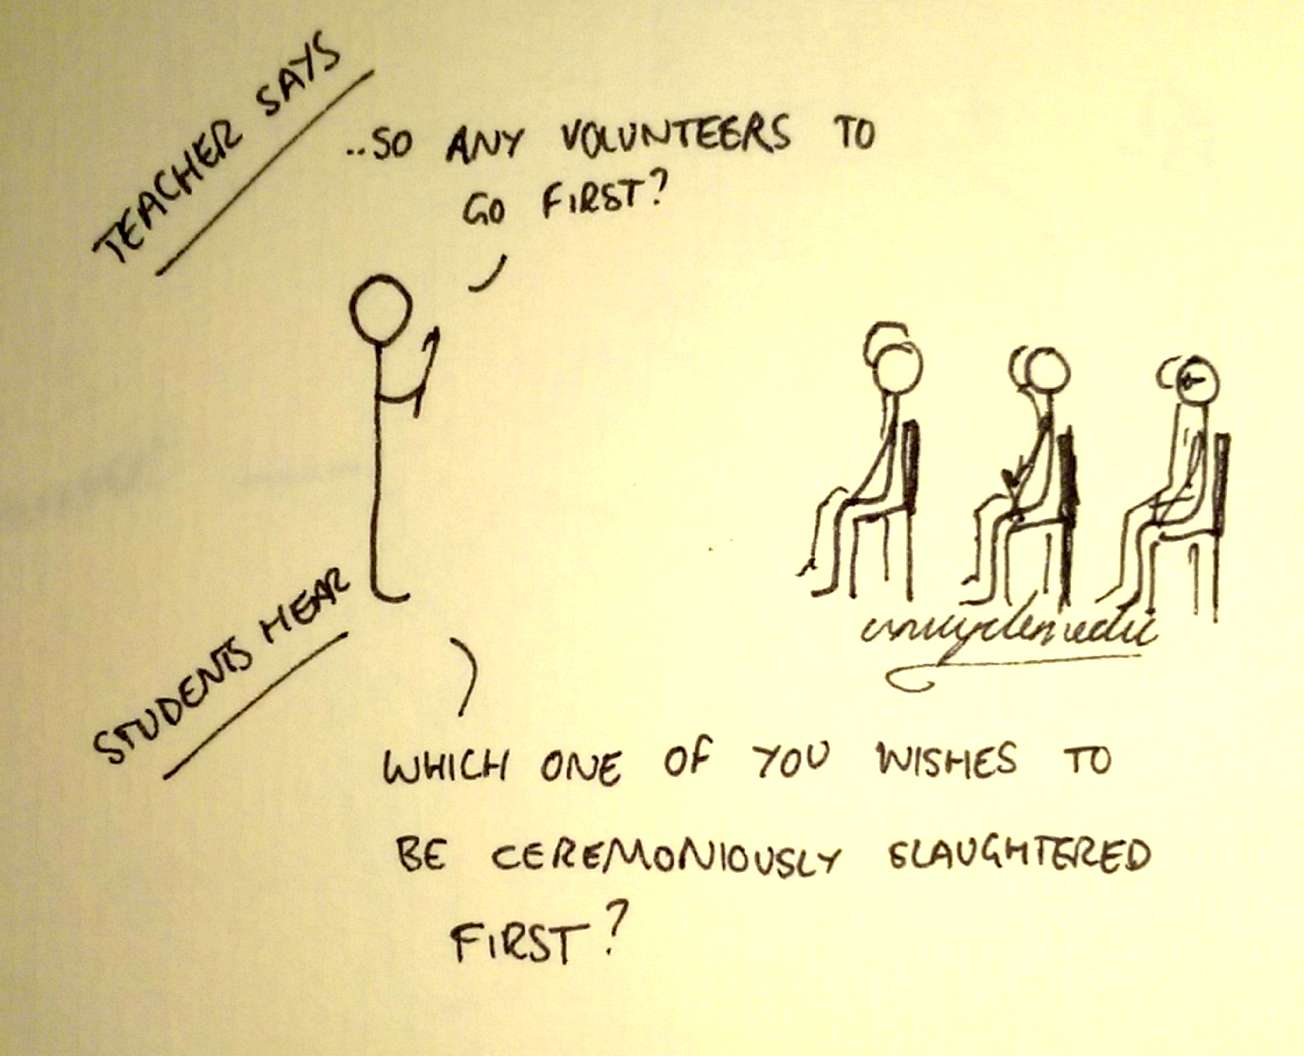 TEACHER SAYS
..SO ANY VOLUNTEERS TO
GO FIRST?
STUDENTS HEAR
WHICH ONE OF YOU WISHES TO
BE CEREMONIOUSLY SLAUGHTERED
FIRST?